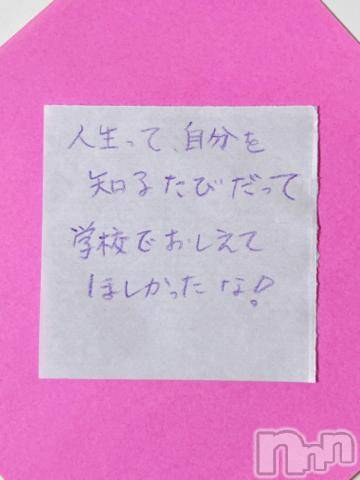 人生って、自分を
知るたびだって
学校でおしえて
ほしかったな!
nnn